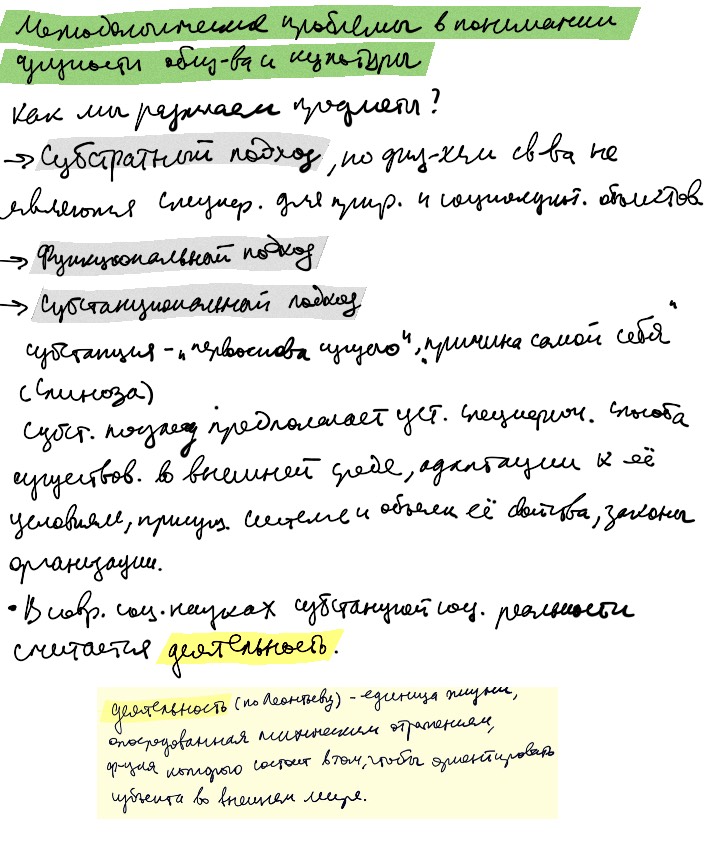 Методологические проблемы в понимании
сущности общ-ва и культуры
Как мы различаем предметы?
→ Субстратный подход, но физ-хим св-ва не
являются специф. для прир. и социокульт. объектов
→ Функциональный подход
→ Субстанциональный подход
субстанция - "первооснова сущего", "причина самой себя"
(Спиноза)
Субст. подход предполагает уст. специфич. способа
существов. в внешней среде, адаптации к её
условиям, присущ. системе и объясн её свойства, законы
организации.
• В совр. соц. науках субстанцией соц. реальности
считается деятельность.
деятельность (по Леонтьеву) - единица жизни,
опосредованная психическим отражением,
ф-ция которого состоит в том, чтобы ориентировать
субъекта во внешнем мире.